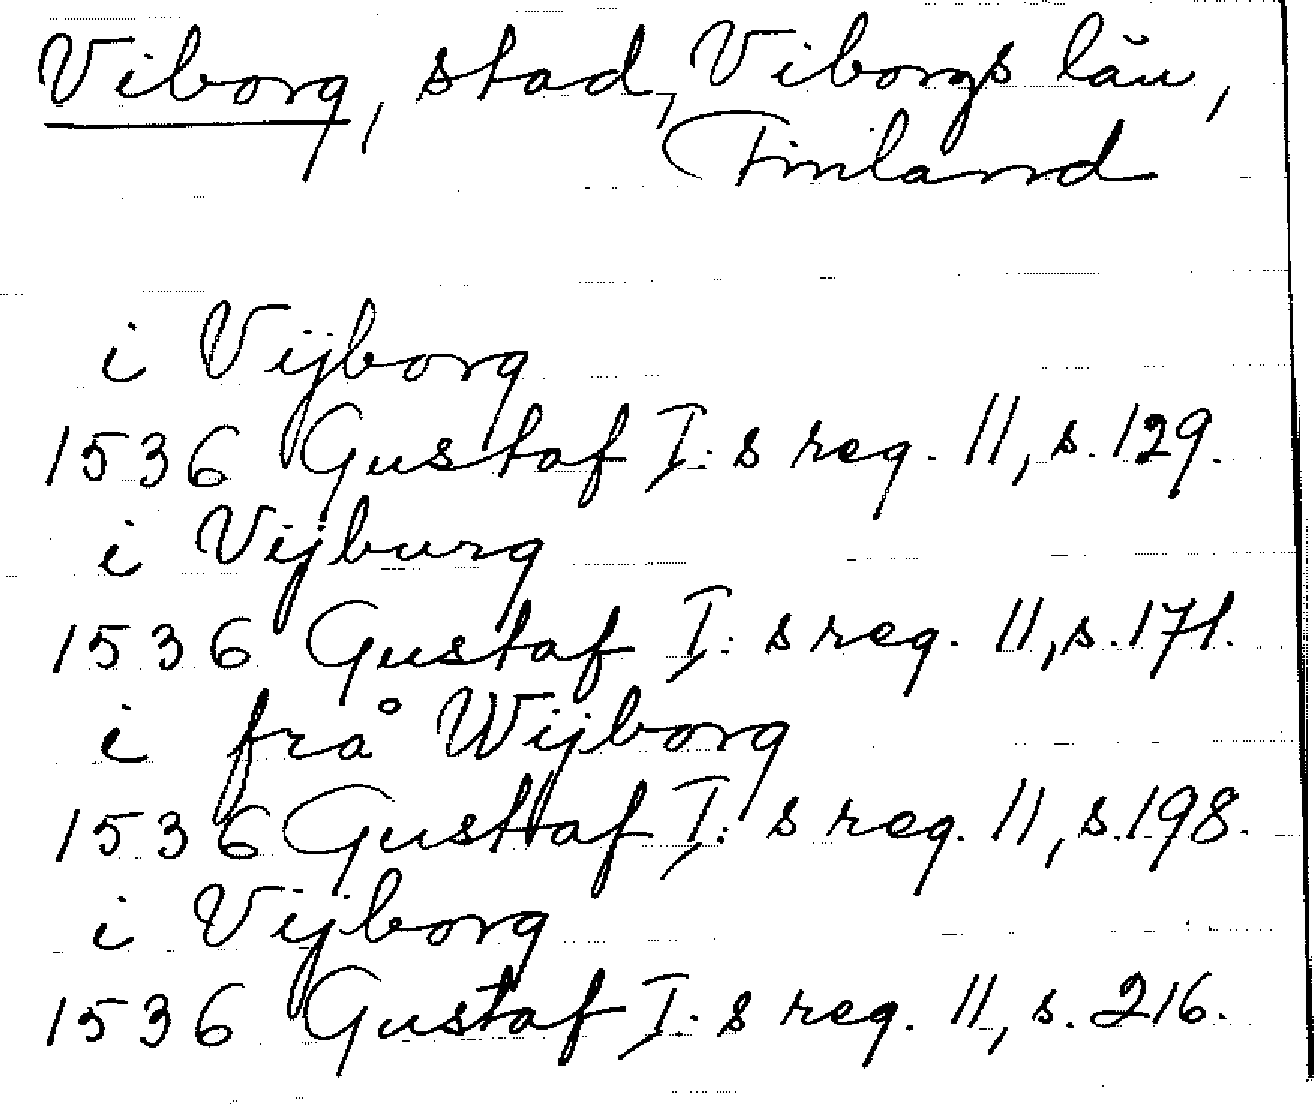 Viborg, stad, Viborgs län,
Finland
i Vijborg
1536 Gustaf I:s reg. 11, s. 129.
i Vijburg
1536 Gustaf I:s reg. 11, s. 171.
i från Wijborg
1536 Gustaf I:s reg. 11, s. 198.
i Vijborg
1536 Gustaf I:s reg. 11, s. 216.